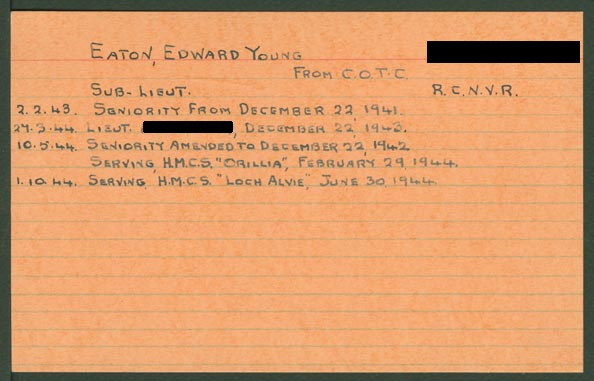 EATON, EDWARD YOUNG
FROM C.O.T.C.
SUB-LIEUT. R.C.N.V.R.
2.2.43. SENIORITY FROM DECEMBER 22, 1941.
27.3.44. LIEUT. , DECEMBER 22, 1943.
10.5.44. SENIORITY AMENDED TO DECEMBER 22, 1942
SERVING, H.M.C.S. "ORILLIA", FEBRUARY 29, 1944.
1.10.44. SERVING, H.M.C.S. "LOCH ALVIE", JUNE 30, 1944.